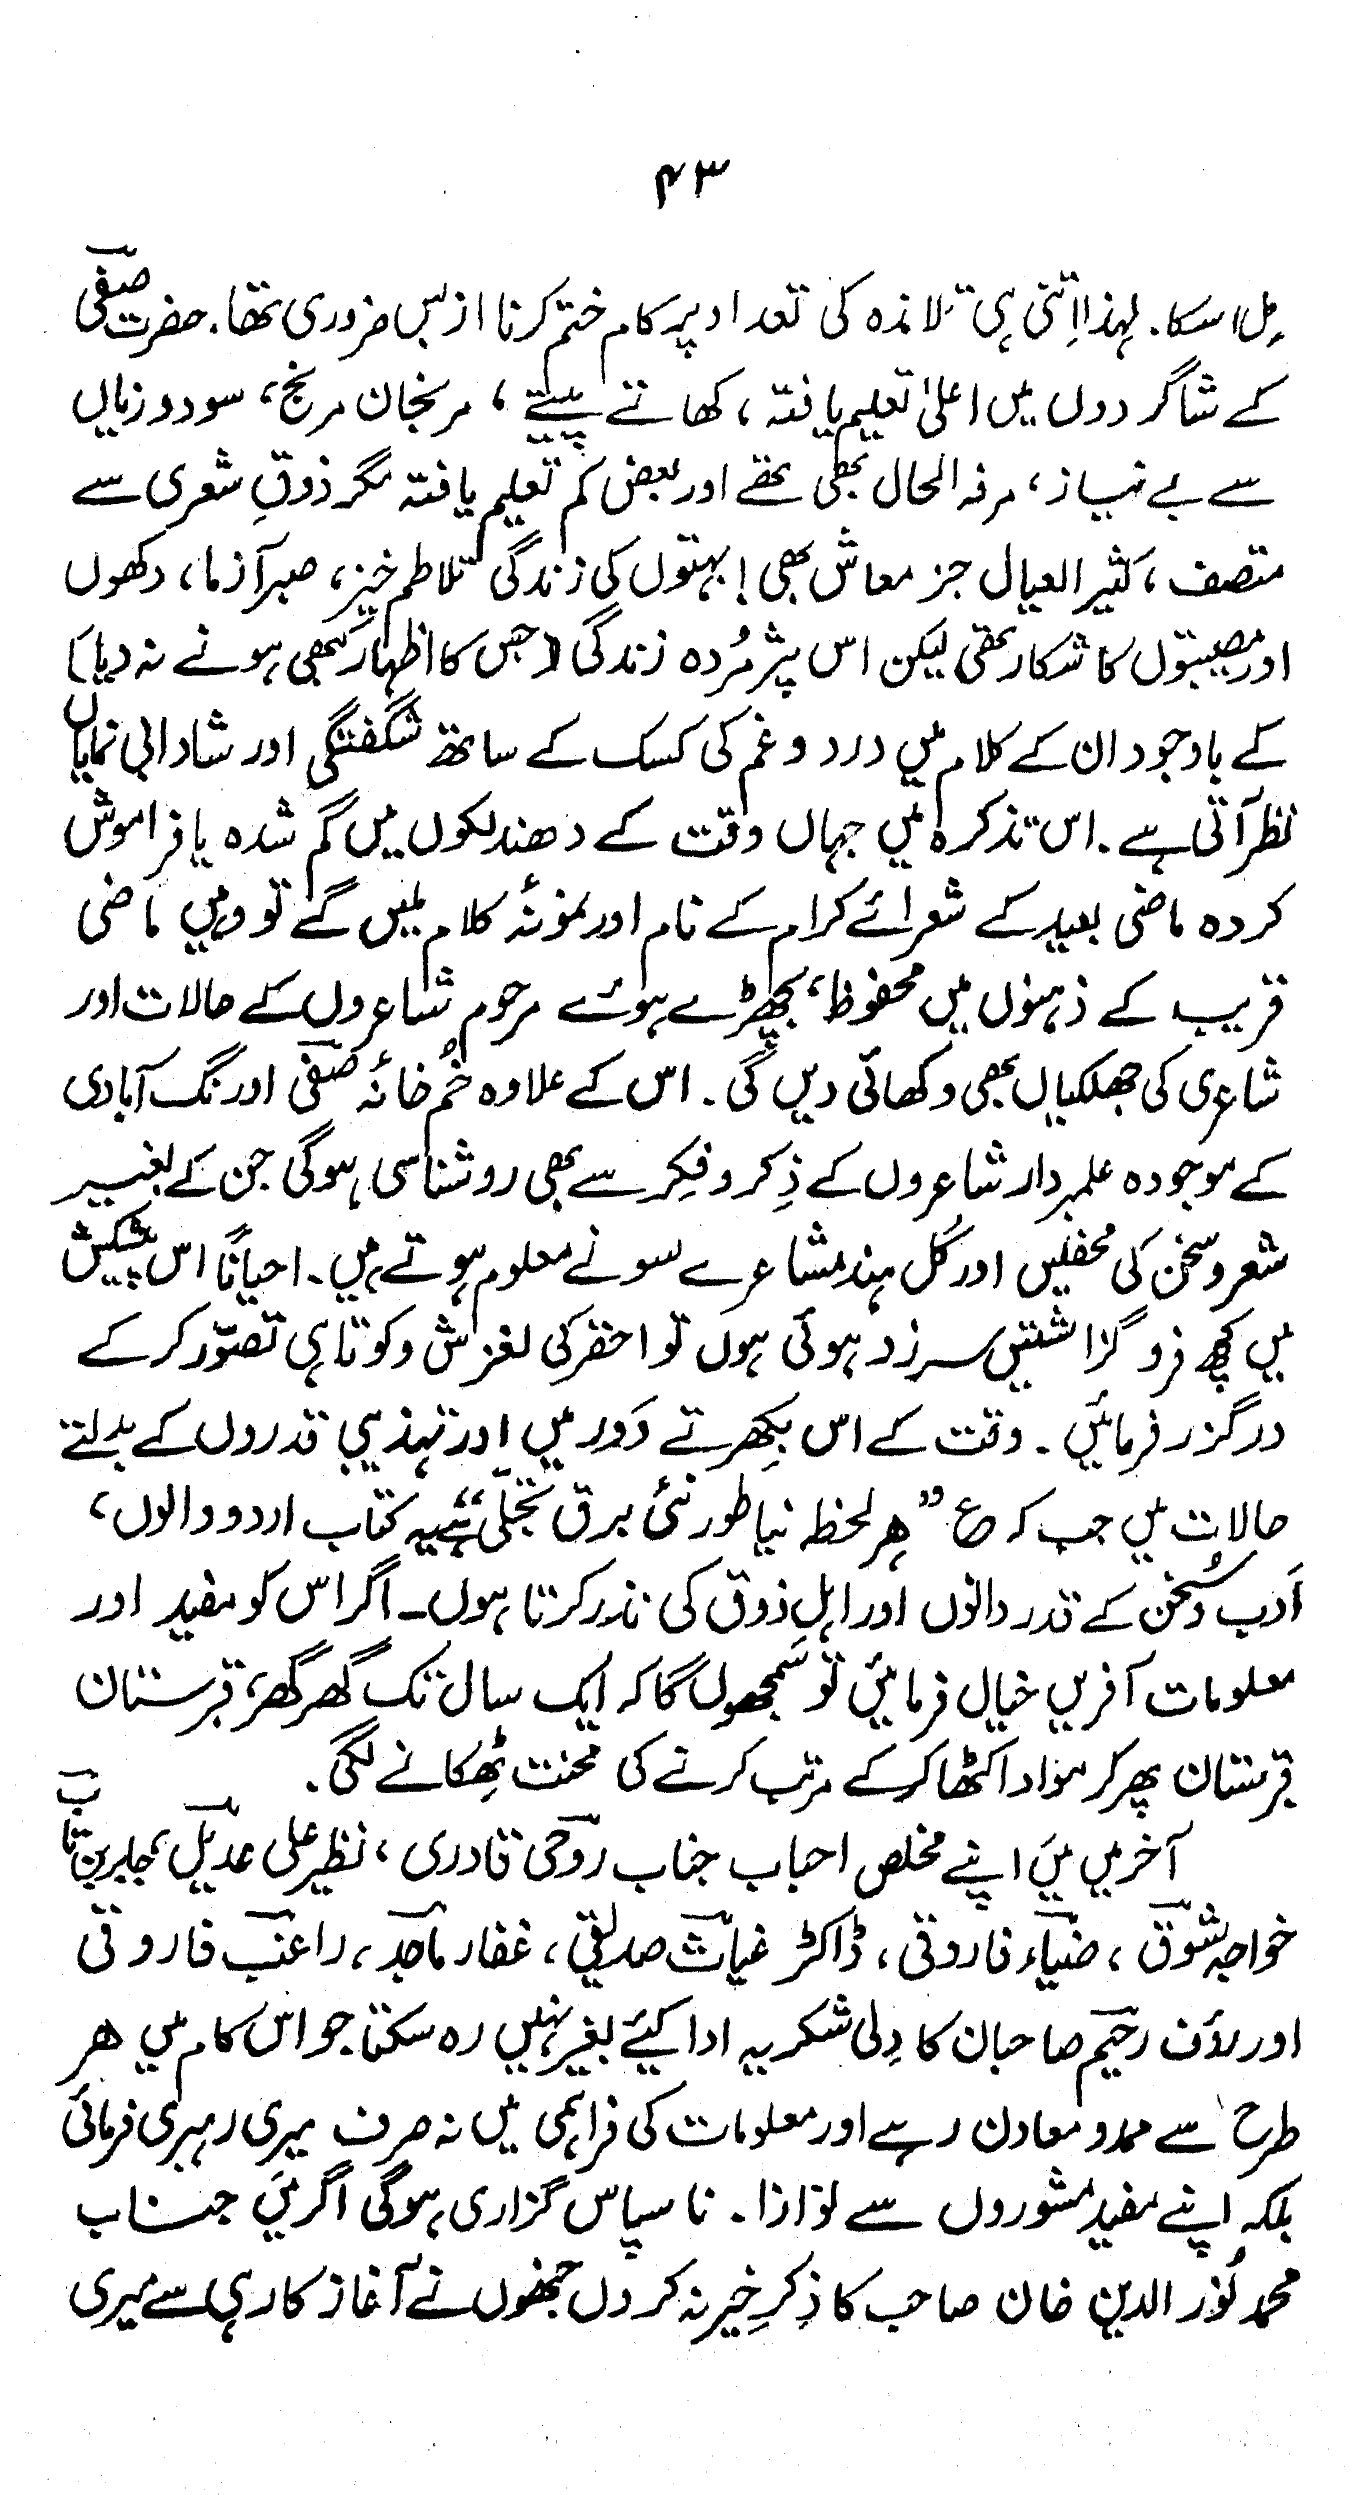 ۴۳
مِل سکا۔ لہذا اِتنی ہی تلامذہ کی تعداد پر کام ختم کرنا ازبس ضروری تھا۔ حضرت صفیؔ
کے شاگردوں میں اعلیٰ تعلیم یافتہ، کھاتے پیتے، مرنجان مرنج، سود و زیاں
سے بے نیاز، مرفہ الحال بھی تھے اور بعض کم تعلیم یافتہ مگر ذوقِ شعری سے
متصف، کثیر العیال جز معاش بھی! بہتوں کی زندگی تلاطم خیز، صبر آزما، دکھوں
اور مصیبتوں کا شکار تھی لیکن اس پژمُردہ زندگی (جس کا اظہار کبھی ہونے نہ دیا)
کے باوجود ان کے کلام میں درد و غم کی کسک کے ساتھ شگفتگی اور شادابی نمایاں
نظر آتی ہے۔ اس تذکرہ میں جہاں وقت کے دھندلکوں میں گم شدہ یا فراموش
کردہ ماضی بعید کے شعرائے کرام کے نام اور نمونۂ کلام ملیں گے تو وہیں ماضی
قریب کے ذہنوں میں محفوظ، بچھڑے ہوئے مرحوم شاعروں کے حالات اور
شاعری کی جھلکیاں بھی دکھائی دیں گی۔ اس کے علاوہ خُم خانۂ صفیؔ اورنگ آبادی
کے موجودہ علمبردار شاعروں کے ذِکر و فِکر سے بھی روشناسی ہوگی جن کے بغیر
شعر و سخن کی محفلیں اور کُل ہند مشاعرے سونے معلوم ہوتے ہیں۔ احیاناً اس پیشکش
میں کچھ فروگزاشتیں سرزد ہوئی ہوں تو احقر کی لغزش و کوتاہی تصوّر کر کے
درگزر فرمائیں۔ وقت کے اس بِکھرتے دَور میں اور تہذیبی قدروں کے بدلتے
حالات میں جب کہ ع ”ہر لحظہ نیا طور نئی برق تجلّی ہے“ یہ کتاب اردو والوں،
اَدب و سُخن کے قدر دانوں اور اہلِ ذوق کی نذر کرتا ہوں۔ اگر اس کو مفید اور
معلومات آفریں خیال فرمائیں تو سَمجھوں گا کہ ایک سال تک گھر گھر، قبرستان
قبرستان پھر کر مواد اکٹھا کرکے مرتب کرنے کی محنت ٹِھکانے لگی۔
آخر میں مَیں اپنے مخلص احباب جناب روحیؔ قادری، نظیر علی عدیلؔ، جابر بن ثابتؔ
خواجہ شوقؔ، ضیاؔء فاروقی، ڈاکٹر غیاثؔ صدیقی، غفار ماجدؔ، راغبؔ فاروقی
اور رؤف رحیمؔ صاحبان کا دِلی شکریہ ادا کیئے بغیر نہیں رہ سکتا جو اس کام میں ہر
طرح سے ممدو معاون رہے اور معلومات کی فراہمی میں نہ صرف میری رہبری فرمائی
بلکہ اپنے مفید مشوروں سے نوازا۔ ناسپاس گزاری ہوگی اگر مَیں جناب
محمد نُور الدین خان صاحب کا ذِکرِ خیر نہ کروں جنھوں نے آغاز کار ہی سے میری